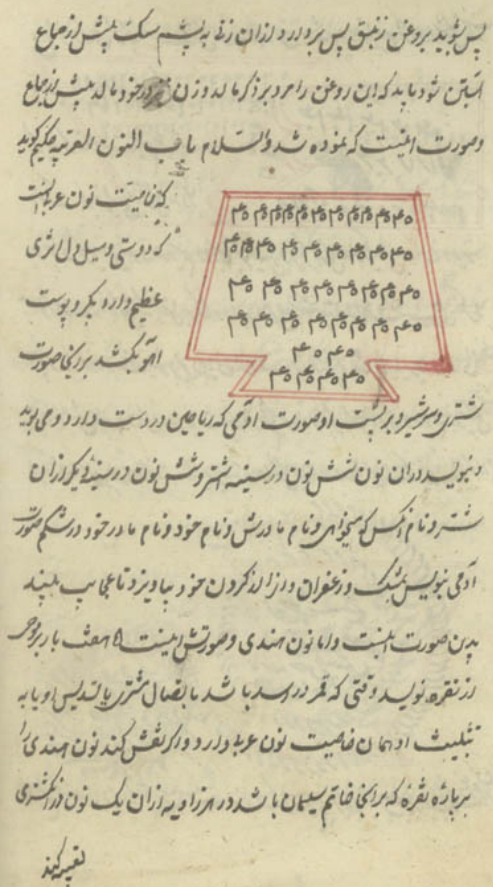 پس بوید بروغن زنبق پس بردارد ازان زن به پشم سک پیش از جماع
ابستن شود باید که این روغن را مرد بر ذکر مالد و زن در خود مالد پیش از جماع
وصورت اینست که نموده شد والسلام باب النون العربیه حکیم کوید
که خاصیت نون عربه انست
که دوستی ومیل دل اثری
عظیم دارد بکیر و پوست
اهو بکشد برانجا صورت
۴۵ ۴۵ ۴۵ ۴۵ ۴۵ ۴۵ ۴۵ ۴۵ ۴۵
۴۵ ۴۵ ۴۵ ۴۵ ۴۵ ۴۵ ۴۵ ۴۵
۴۵ ۴۵ ۴۵ ۴۵ ۴۵ ۴۵ ۴۵ ۴۵
۴۵ ۴۵ ۴۵ ۴۵ ۴۵ ۴۵ ۴۵ ۴۵
۴۵ ۴۵
۴۵ ۴۵ ۴۵ ۴۵
شتری وسر شیر و بر پشت او صورت ادمی که ریاحین در دست دارد و می بوید
و بنویسد دران نون شش نون در سینه اشتر وشش نون در سینه دیکر ازان
شتر و نام انکس که میخواهی و نام مادرش و نام خود و نام مادر خود در شکم صورت
ادمی بنویس بمشک و زعفران و از کردن خود بیاویزد تا عجایب بیند
بدین صورت اینست واما نون هندی وصورتش اینست ۵ هفت بار بر لوحی
از نقره نویسد وقتی که قمر در اسد باشد باتصال مشتری یا تسدیس او یا به
تثلیث او همان خاصیت نون عربه دارد واکر نقش کند نون هندی را
بر پاره نقره که برانجا خاتم سلیمان باشد در هر زاویه ازان یک نون در انکشتری
تعبیه کند